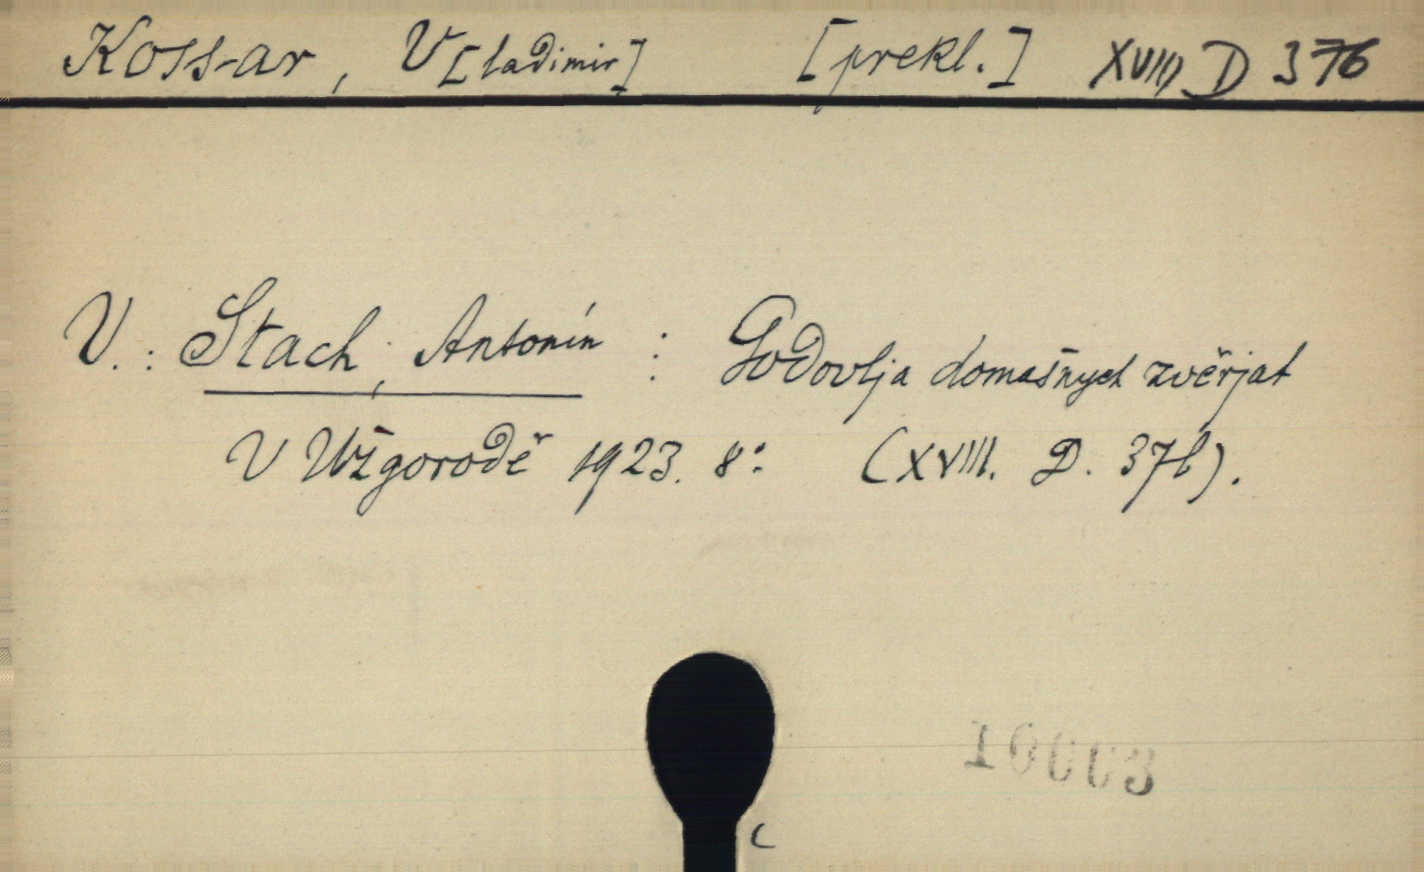 Kossar, V[ladimir] [překl.] XVIII D 376
V.: Stach, Antonín : Godovlja domašnych zvěrjat
V Užgorodě 1923. 8°. (XVIII. D. 376).
10003
C